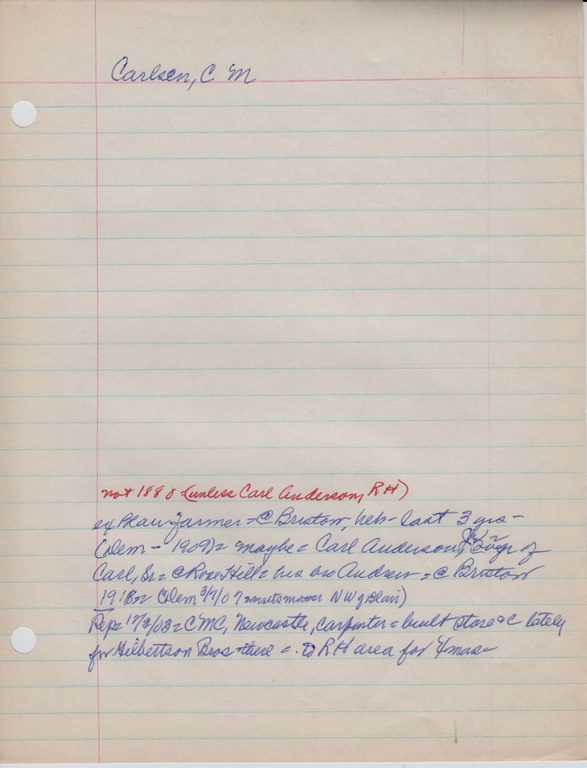 Carlsen, C M
not 1880 (unless Carl Anderson, RH)
ex Blair farmer = @ Bristow, Neb - last 3 yrs -
(Dem - 1907) = maybe = Carl Anderson, Jr = 20 yr of
Carl, Sr = @ Rose Hill = his bro Andrew = @ Bristow
1918 = (Dem 3/7/07 = NW of Blair)
Rep = = CMC, Newcastle, carpenter = built store @ C lately
for Gilbertson Bros there = to RH area for 4 mos =